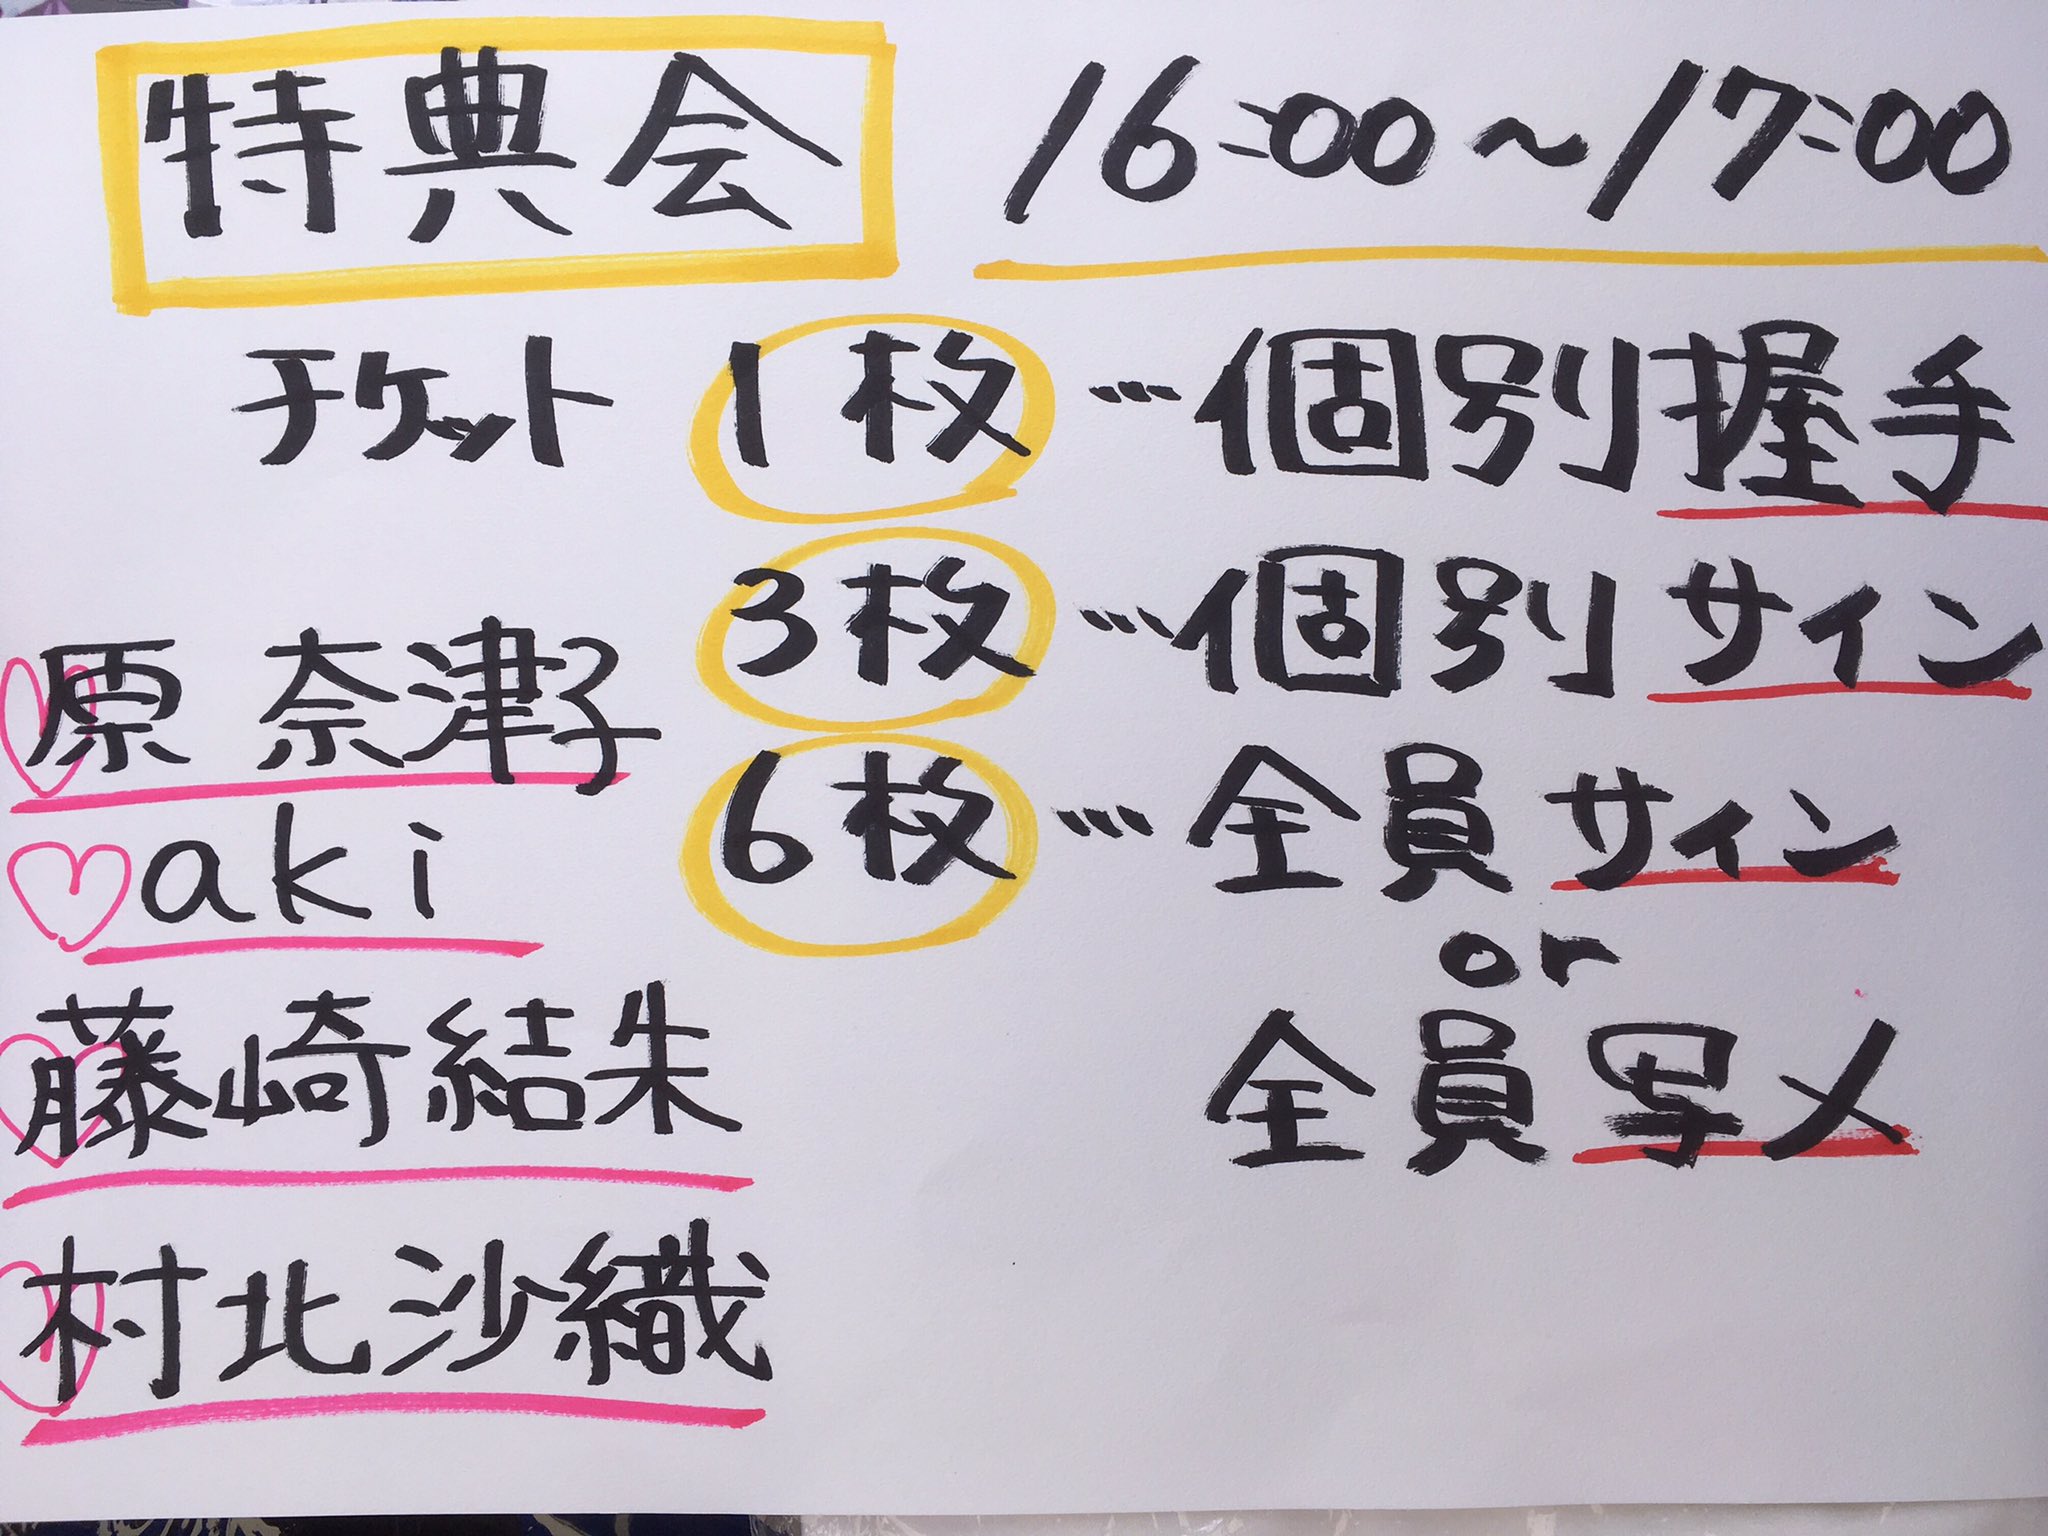 特典会 16:00~17:00
チケット 1枚…個別握手
3枚…個別サイン
6枚…全員サイン
or
全員写メ
♡原 奈津子
♡aki
♡藤崎結朱
♡村北沙織